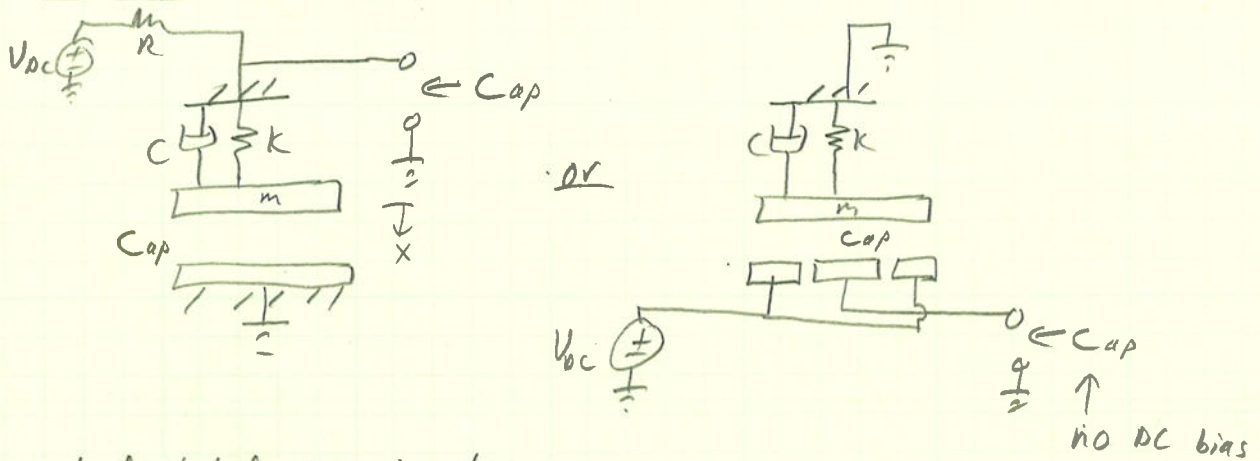 V_DC ±
R
← Cap
C
K
m
↓ x
Cap
or
C
K
m
Cap
V_DC ±
← Cap
↑
no DC bias